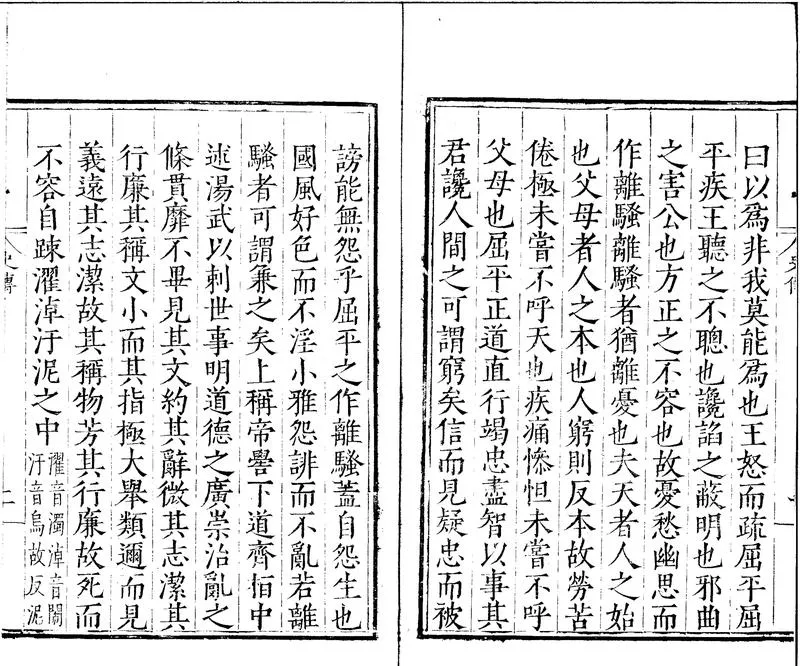 曰以爲非我莫能爲也王怒而疏屈平屈
平疾王聽之不聰也讒謟之蔽明也邪曲
之害公也方正之不容也故憂愁幽思而
作離騷離騷者猶離憂也夫天者人之始
也父母者人之本也人窮則反本故勞苦
倦極未嘗不呼天也疾痛慘怛未嘗不呼
父母也屈平正道直行竭忠盡智以事其
君讒人間之可謂窮矣信而見疑忠而被
謗能無怨乎屈平之作離騷蓋自怨生也
國風好色而不淫小雅怨誹而不亂若離
騷者可謂兼之矣上稱帝嚳下道齊桓中
述湯武以刺世事明道德之廣崇治亂之
條貫靡不畢見其文約其辭微其志潔其
行廉其稱文小而其指極大舉類邇而見
義遠其志潔故其稱物芳其行廉故死而
不容自踈濯淖汙泥之中
濯音濁淖音閙
汙音烏故反泥
史傳